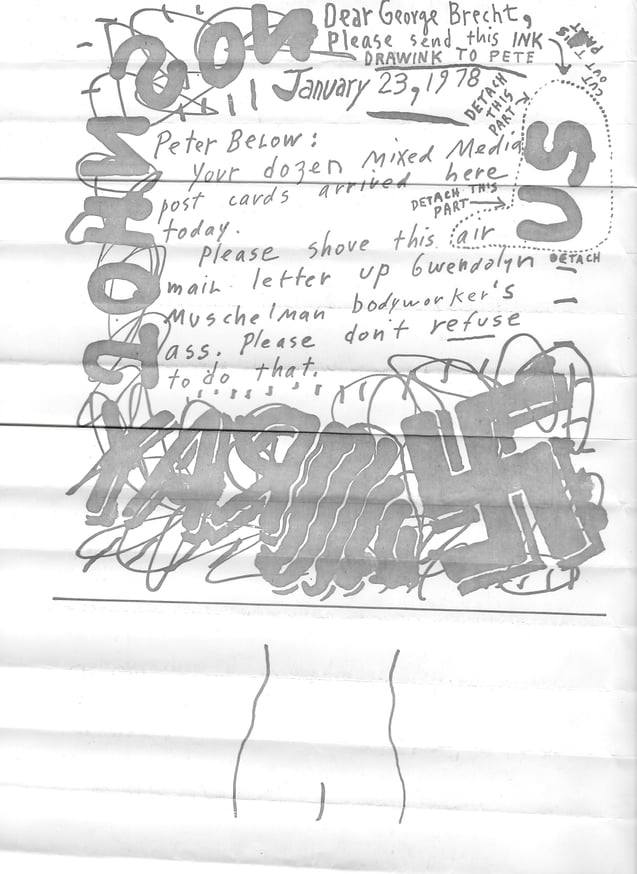 Dear George Brecht,
Please send this INK
DRAWINK TO PETE
CUT OUT
THIS PART
January 23, 1978
DETACH
THIS
PART
Peter Below:
Your dozen mixed Media
post cards arrived here
today.
DETACH THIS
PART
Please shove this air
DETACH
mail letter up Gwendolyn
Muschelman bodyworker's
ass. Please don't refuse
to do that.
JOHNSON
US